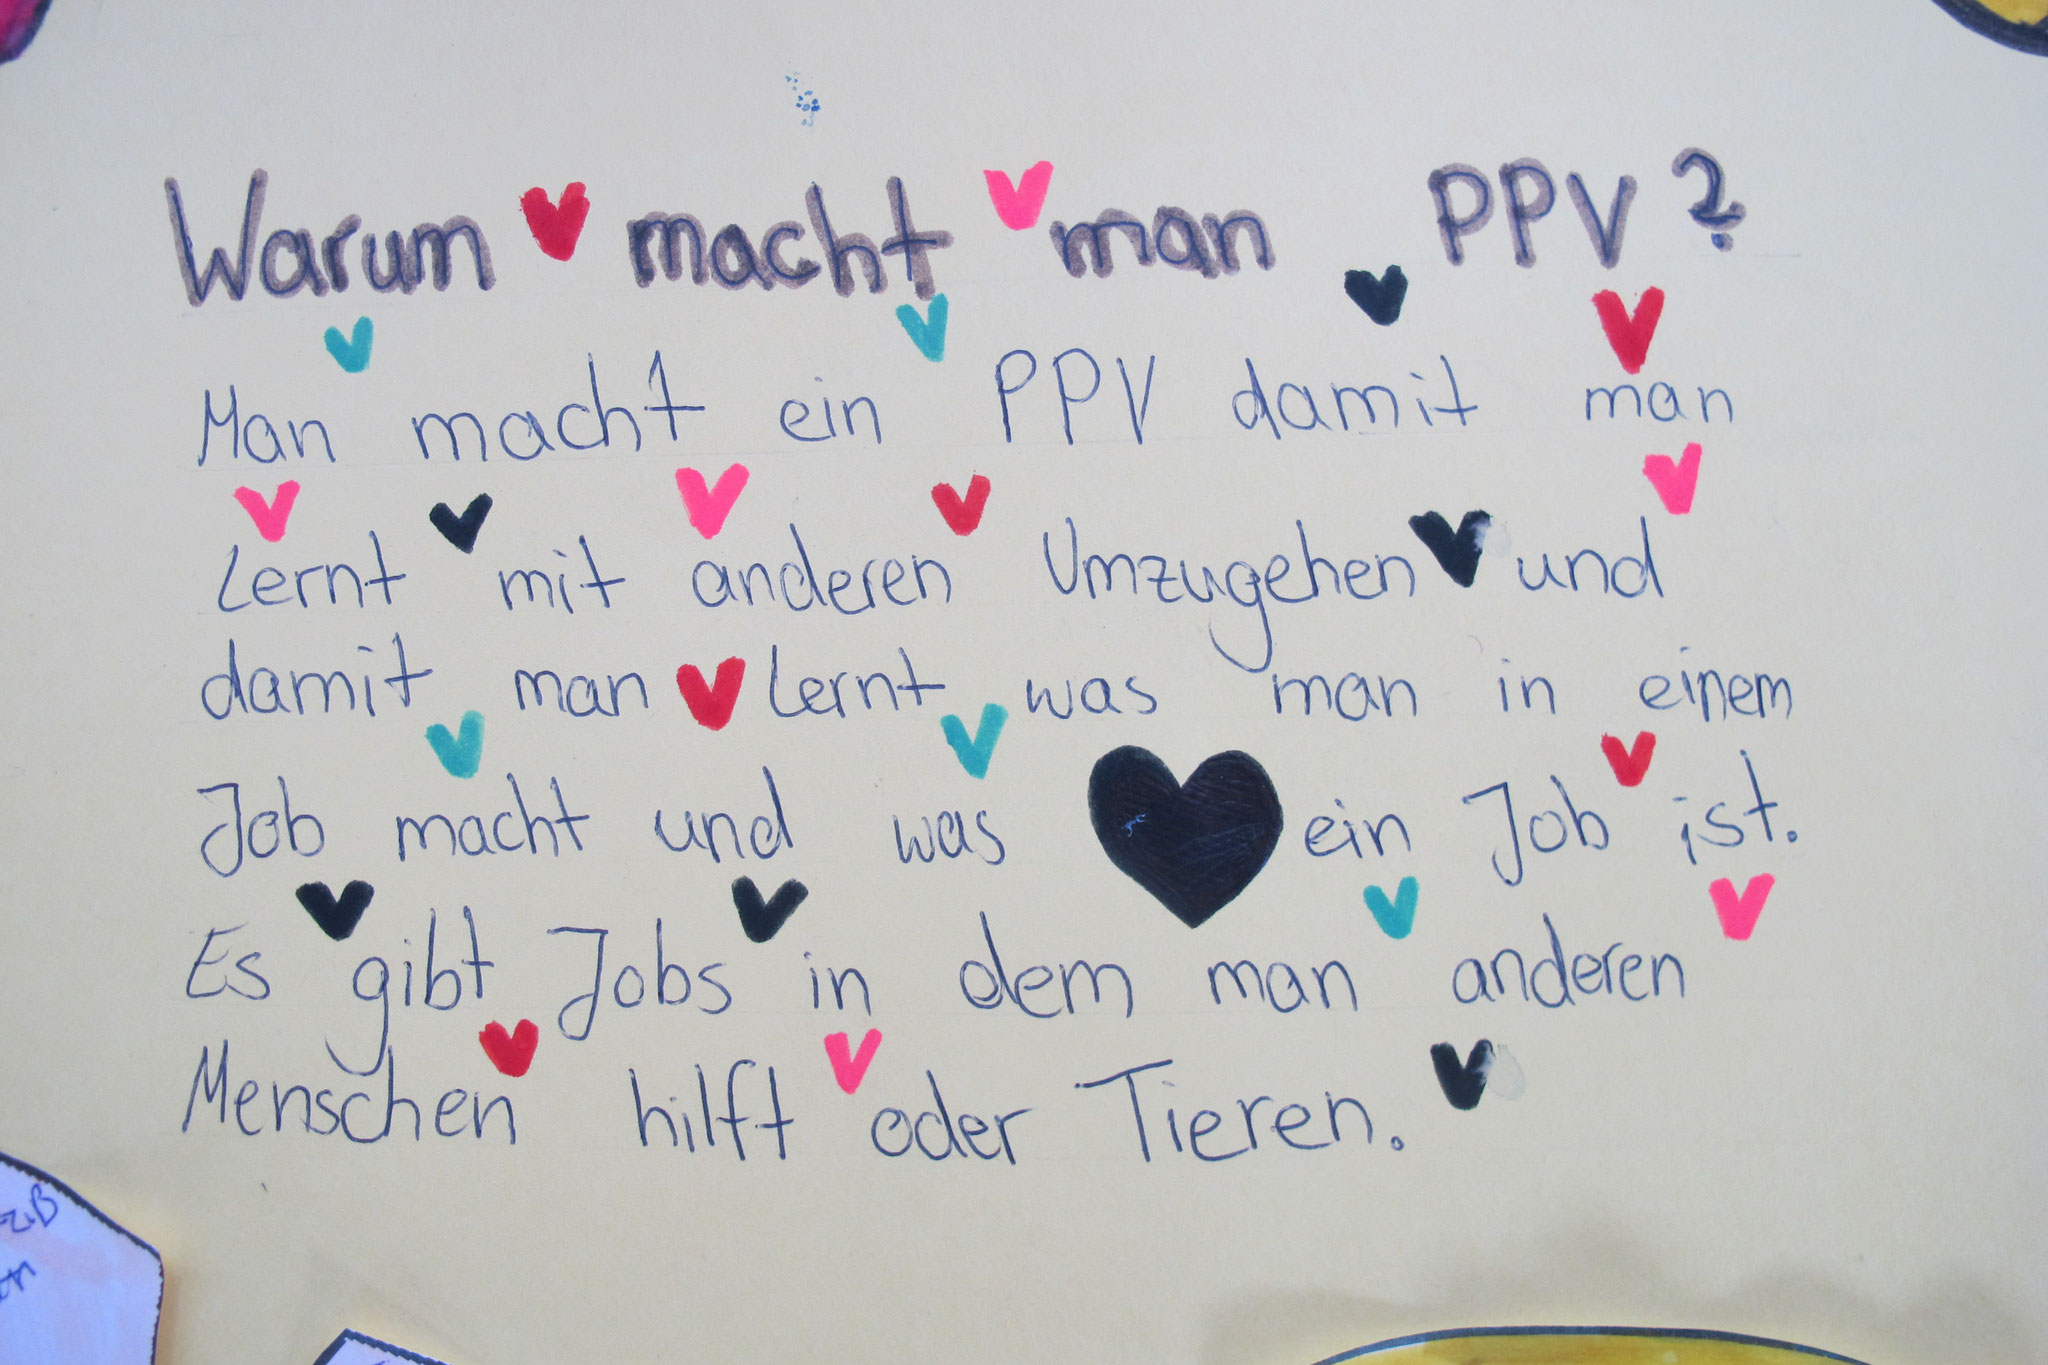 Warum macht man PPV?
Man macht ein PPV damit man
Lernt mit anderen Umzugehen und
damit man Lernt was man in einem
Job macht und was ein Job ist.
Es gibt Jobs in dem man anderen
Menschen hilft oder Tieren.
z.B